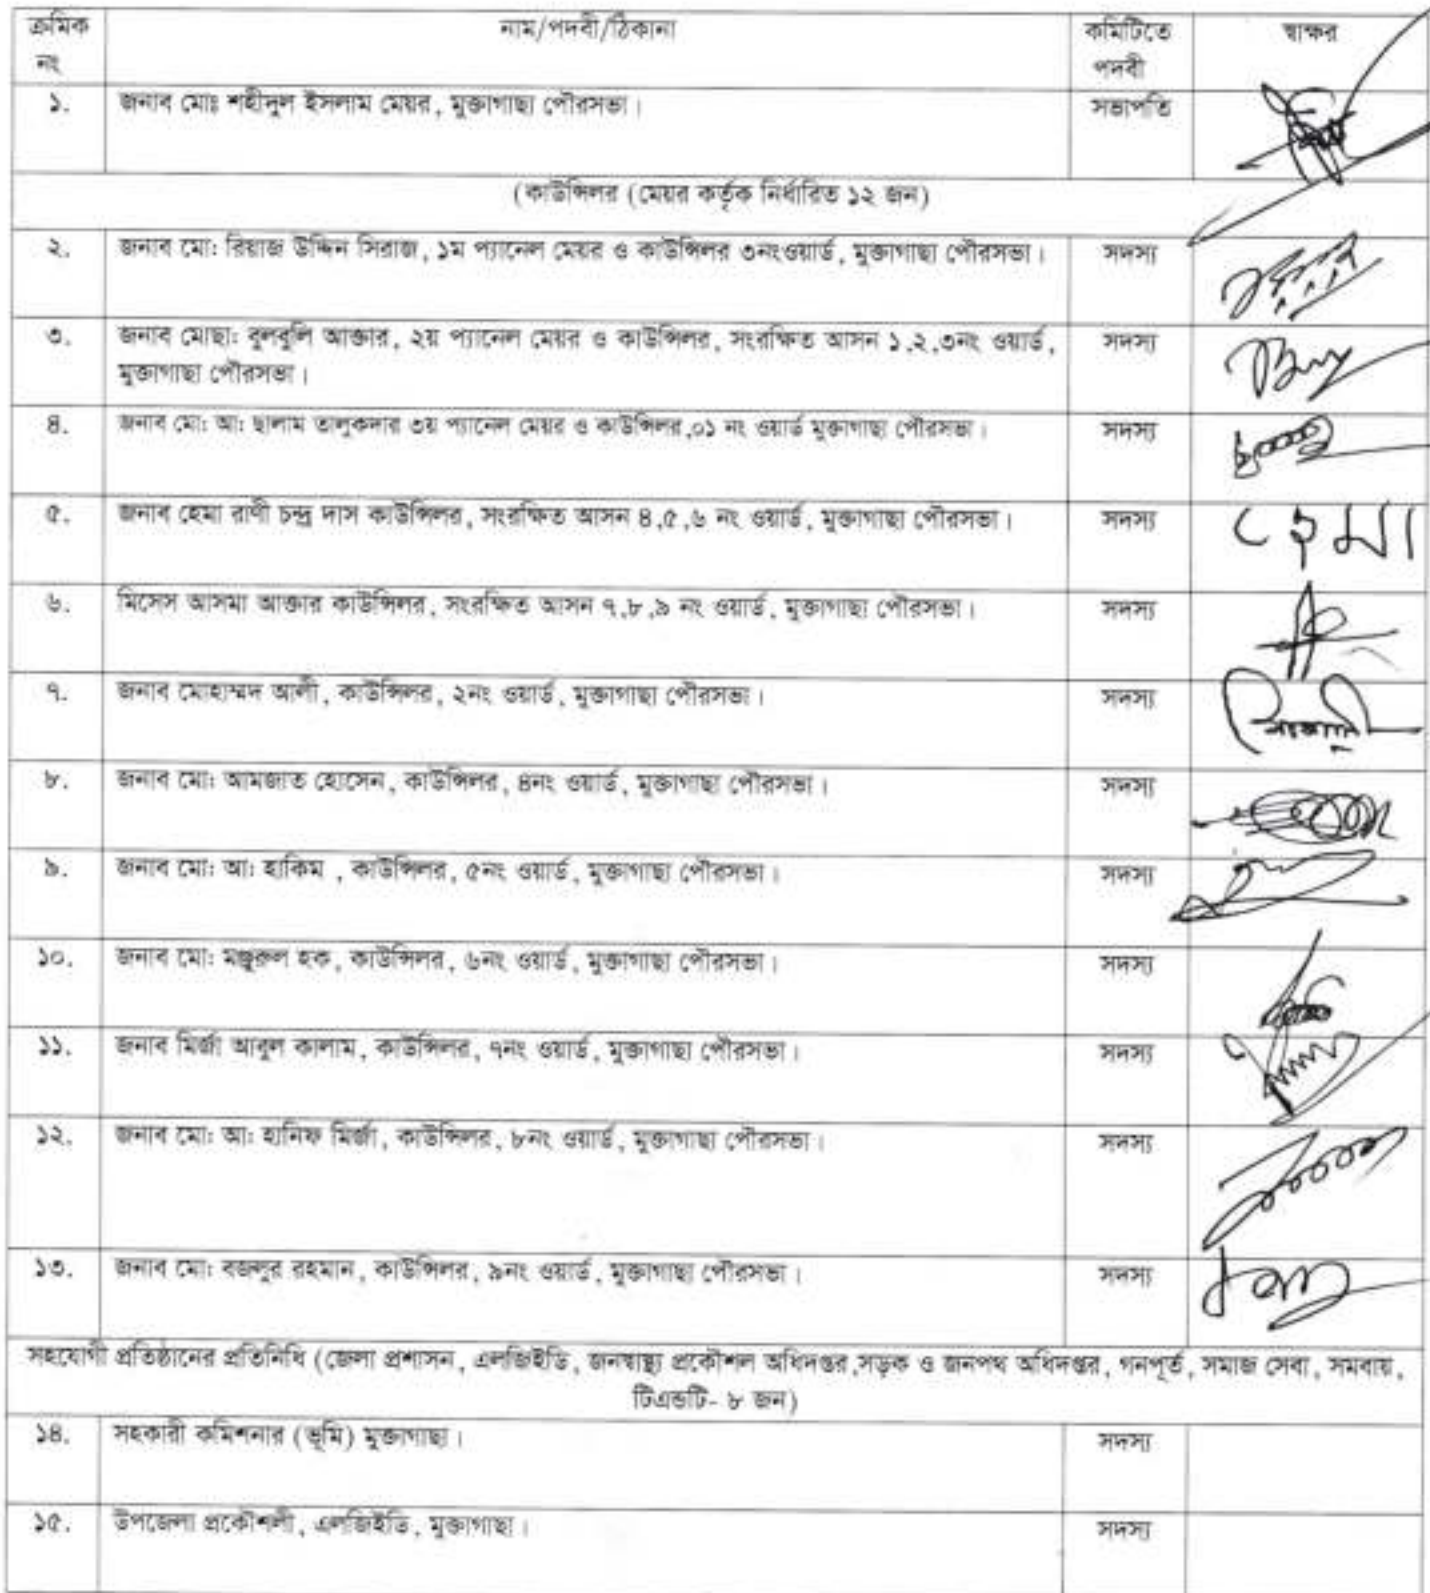 ক্রমিক নং নাম/পদবী/ঠিকানা কমিটিতে পদবী স্বাক্ষর
১. জনাব মোঃ শহীদুল ইসলাম মেয়র, মুক্তাগাছা পৌরসভা। সভাপতি
(কাউন্সিলর (মেয়র কর্তৃক নির্ধারিত ১২ জন)
২. জনাব মো: রিয়াজ উদ্দিন সিরাজ, ১ম প্যানেল মেয়র ও কাউন্সিলর ৩নংওয়ার্ড, মুক্তাগাছা পৌরসভা। সদস্য
৩. জনাব মোছা: বুলবুলি আক্তার, ২য় প্যানেল মেয়র ও কাউন্সিলর, সংরক্ষিত আসন ১,২,৩নং ওয়ার্ড, সদস্য
মুক্তাগাছা পৌরসভা।
৪. জনাব মো: আ: ছালাম তালুকদার ৩য় প্যানেল মেয়র ও কাউন্সিলর,০১ নং ওয়ার্ড মুক্তাগাছা পৌরসভা। সদস্য
৫. জনাব হেমা রাণী চন্দ্র দাস কাউন্সিলর, সংরক্ষিত আসন ৪,৫,৬ নং ওয়ার্ড, মুক্তাগাছা পৌরসভা। সদস্য হেমা
৬. মিসেস আসমা আক্তার কাউন্সিলর, সংরক্ষিত আসন ৭,৮,৯ নং ওয়ার্ড, মুক্তাগাছা পৌরসভা। সদস্য
৭. জনাব মোহাম্মদ আলী, কাউন্সিলর, ২নং ওয়ার্ড, মুক্তাগাছা পৌরসভা। সদস্য
৮. জনাব মো: আমজাত হোসেন, কাউন্সিলর, ৪নং ওয়ার্ড, মুক্তাগাছা পৌরসভা। সদস্য
৯. জনাব মো: আ: হাকিম , কাউন্সিলর, ৫নং ওয়ার্ড, মুক্তাগাছা পৌরসভা। সদস্য
১০. জনাব মো: মঞ্জুরুল হক, কাউন্সিলর, ৬নং ওয়ার্ড, মুক্তাগাছা পৌরসভা। সদস্য
১১. জনাব মির্জা আবুল কালাম, কাউন্সিলর, ৭নং ওয়ার্ড, মুক্তাগাছা পৌরসভা। সদস্য
১২. জনাব মো: আ: হানিফ মির্জা, কাউন্সিলর, ৮নং ওয়ার্ড, মুক্তাগাছা পৌরসভা। সদস্য
১৩. জনাব মো: বজলুর রহমান, কাউন্সিলর, ৯নং ওয়ার্ড, মুক্তাগাছা পৌরসভা। সদস্য
সহযোগী প্রতিষ্ঠানের প্রতিনিধি (জেলা প্রশাসন, এলজিইডি, জনস্বাস্থ্য প্রকৌশল অধিদপ্তর,সড়ক ও জনপথ অধিদপ্তর, গনপূর্ত, সমাজ সেবা, সমবায়,
টিএন্ডটি- ৮ জন)
১৪. সহকারী কমিশনার (ভূমি) মুক্তাগাছা। সদস্য
১৫. উপজেলা প্রকৌশলী, এলজিইডি, মুক্তাগাছা। সদস্য